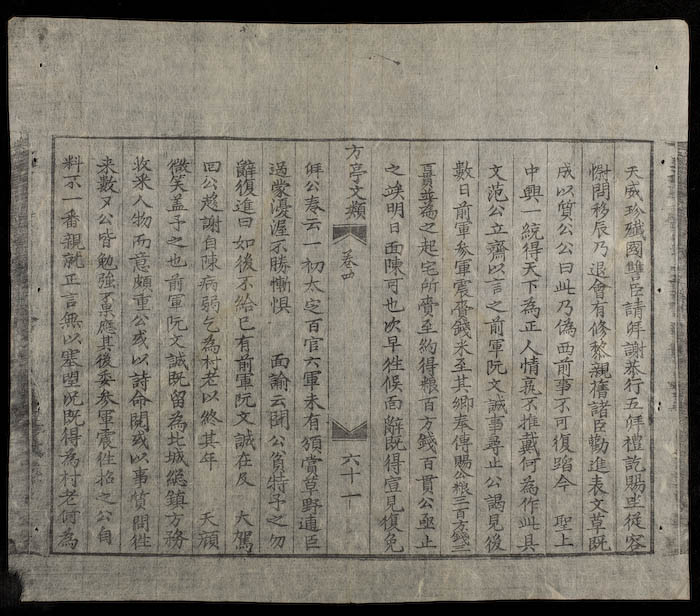 天威殄殲國讐臣請拜謝恭行五拜禮訖賜坐從容
慰問移辰乃退會有修黎親舊諸臣勸進表文草既
成以質公公曰此乃偽西前事不可復蹈今　聖上
中興一統得天下為正人情衰不推戴何為作此具
文范公立齋以言之前軍阮文誠事尋止公謁見後
數日前軍參軍震賫錢米至其鄉奉傳賜公粮三百方錢三
百貫並為之起宅所賫至約得粮百方錢百貫公亟止
之竢明日面陳可也次早徃候面辭既得宣見復免
方亭文類　卷四　六十一
拜公奏云一初太定百官六軍未有頒賞草野逋臣
過蒙憂渥不勝慚惧　面諭云聞公貧特予之勿
辭復進曰如後不給已有前軍阮文誠在及　大駕
回公趍謝自陳病弱乞為村老以終其年　天顏
微笑盖予之也前軍阮文誠既留為北城總鎮方務
收采人物而意頗重公或以詩命閱或以事質問徃
來數又公皆勉強不果應其後委參軍震徃招之公自
料不一番親就正言無以塞望况既得為村老何為